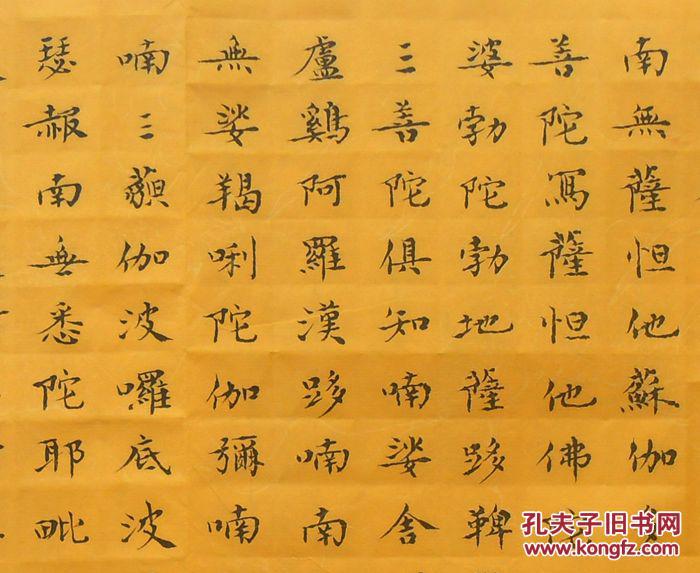 南無薩怛他蘇伽
菩陀寫薩怛他佛陀
婆勃陀勃地薩跢鞞
三菩陀俱知喃娑舍
盧鷄阿羅漢跢喃南
無娑羯唎陀伽彌喃
喃三藐伽波囉底波
瑟赧南無悉陀耶毗
孔夫子旧书网
www.kongfz.com